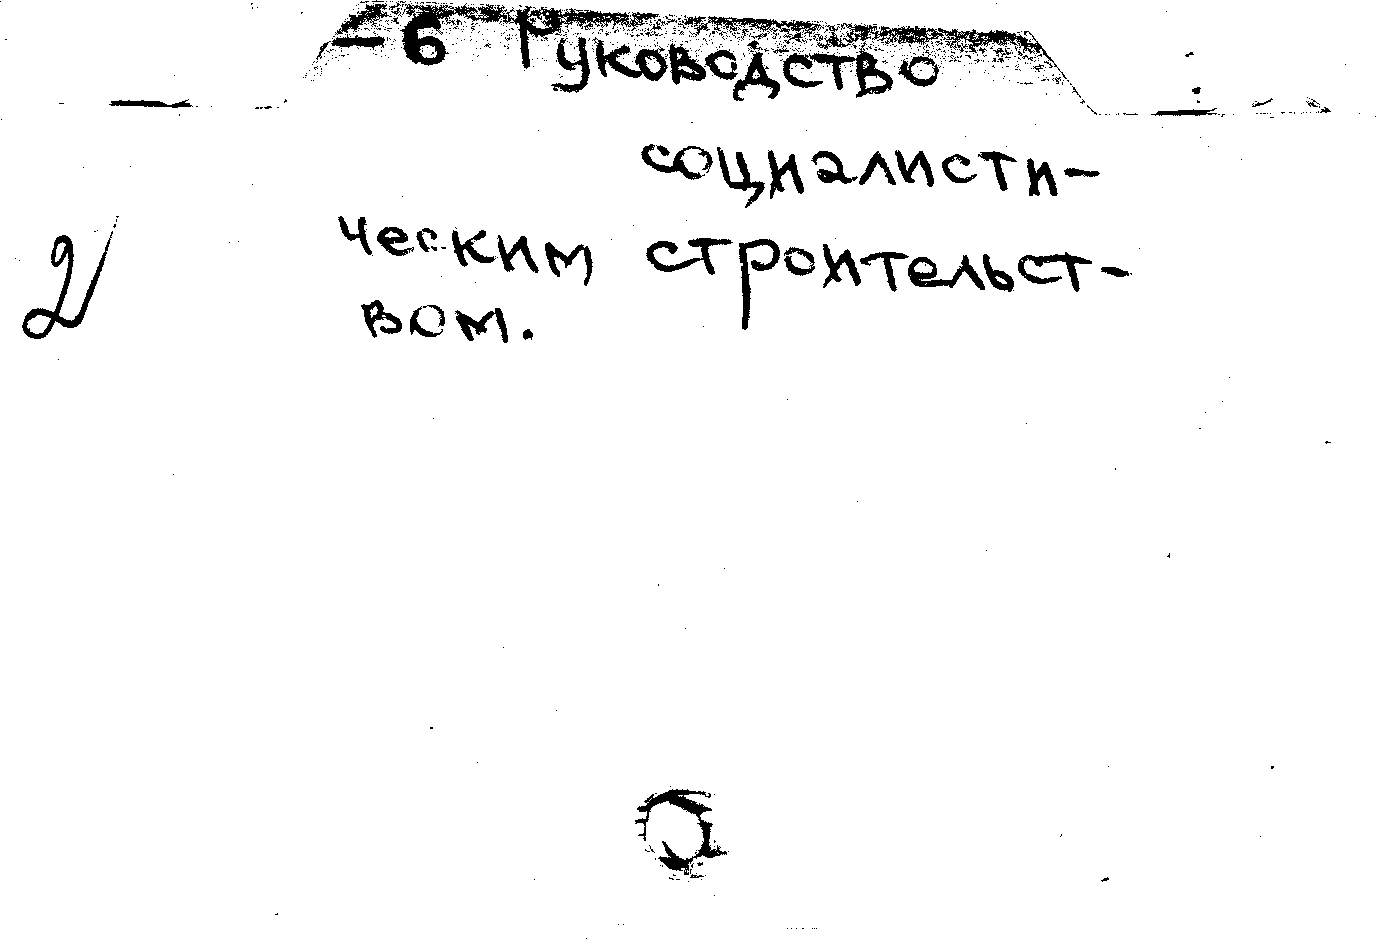 -6 Руководство
социалисти-
ческим строительст-
вом.
2